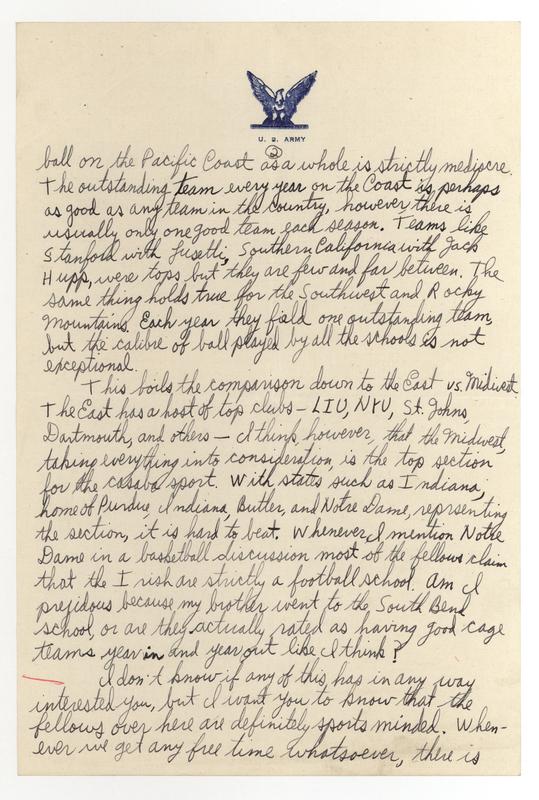 U. S. ARMY
2
ball on the Pacific Coast as a whole is strictly mediocre.
The outstanding team every year on the Coast is, perhaps
as good as any team in the country, however there is
usually only one good team each season. Teams like
Stanford with Lusetti, Southern California with Jack
Hupp, were tops but they are few and far between. The
same thing holds true for the Southwest and Rocky
Mountains. Each year they field one outstanding team,
but the calibre of ball played by all the schools is not
exceptional.
This boils the comparison down to the East vs. Midwest.
The East has a host of top clubs — LIU, NYU, St. Johns,
Dartmouth, and others — I think, however, that the Midwest,
taking everything into consideration, is the top section
for the casaba sport. With states such as Indiana,
home of Purdue, Indiana, Butler, and Notre Dame, reprsenting
the section, it is hard to beat. Whenever I mention Notre
Dame in a basketball discussion most of the fellows claim
that the Irish are strictly a football school. Am I
prejidous because my brother went to the South Bend
school, or are they actually rated as having good cage
teams year in and year out like I think?
I don't know if any of this has in any way
interested you, but I want you to know that the
fellows over here are definitely sports minded. When-
ever we get any free time whatsoever, there is